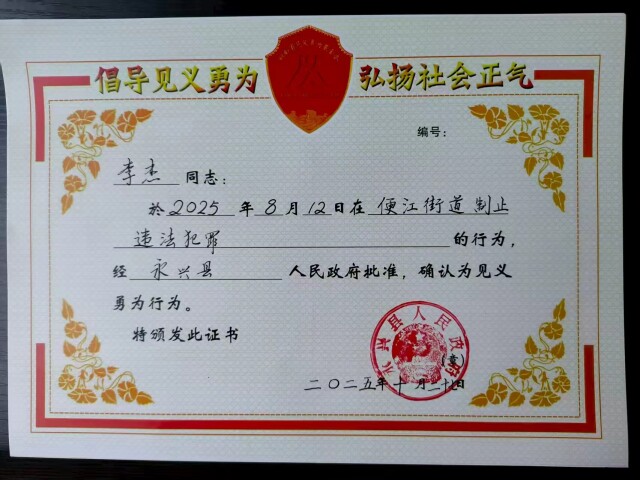 倡导见义勇为 弘扬社会正气
编号：
李杰 同志：
於2025 年 8 月 12 日在 便江街道制止
违法犯罪 的行为，
经 永兴县 人民政府批准，确认为见义
勇为行为。
特颁发此证书
永兴县人民政府
(章)
二〇二五年十月二十九日